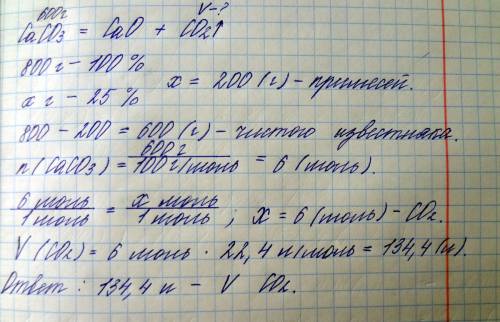 600г V-?
CaCO₃ = CaO + CO₂↑
800 г - 100 %
x г - 25 %
x = 200 (г) - примесей.
800 - 200 = 600 (г) - чистого известняка.
n (CaCO₃) = 600 г / 100 г/моль = 6 (моль).
6 моль / 1 моль = x моль / 1 моль ; x = 6 (моль) - CO₂.
V (CO₂) = 6 моль · 22,4 л/моль = 134,4 (л).
Ответ : 134,4 л - V CO₂.